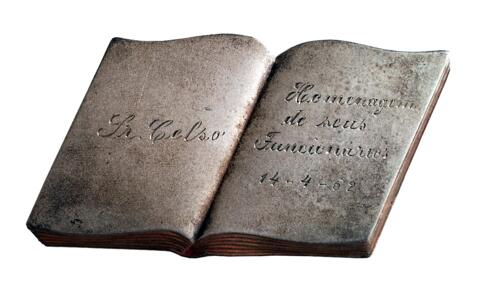 Sr. Celso
Homenagem
de seus
Funcionários
14-4-62